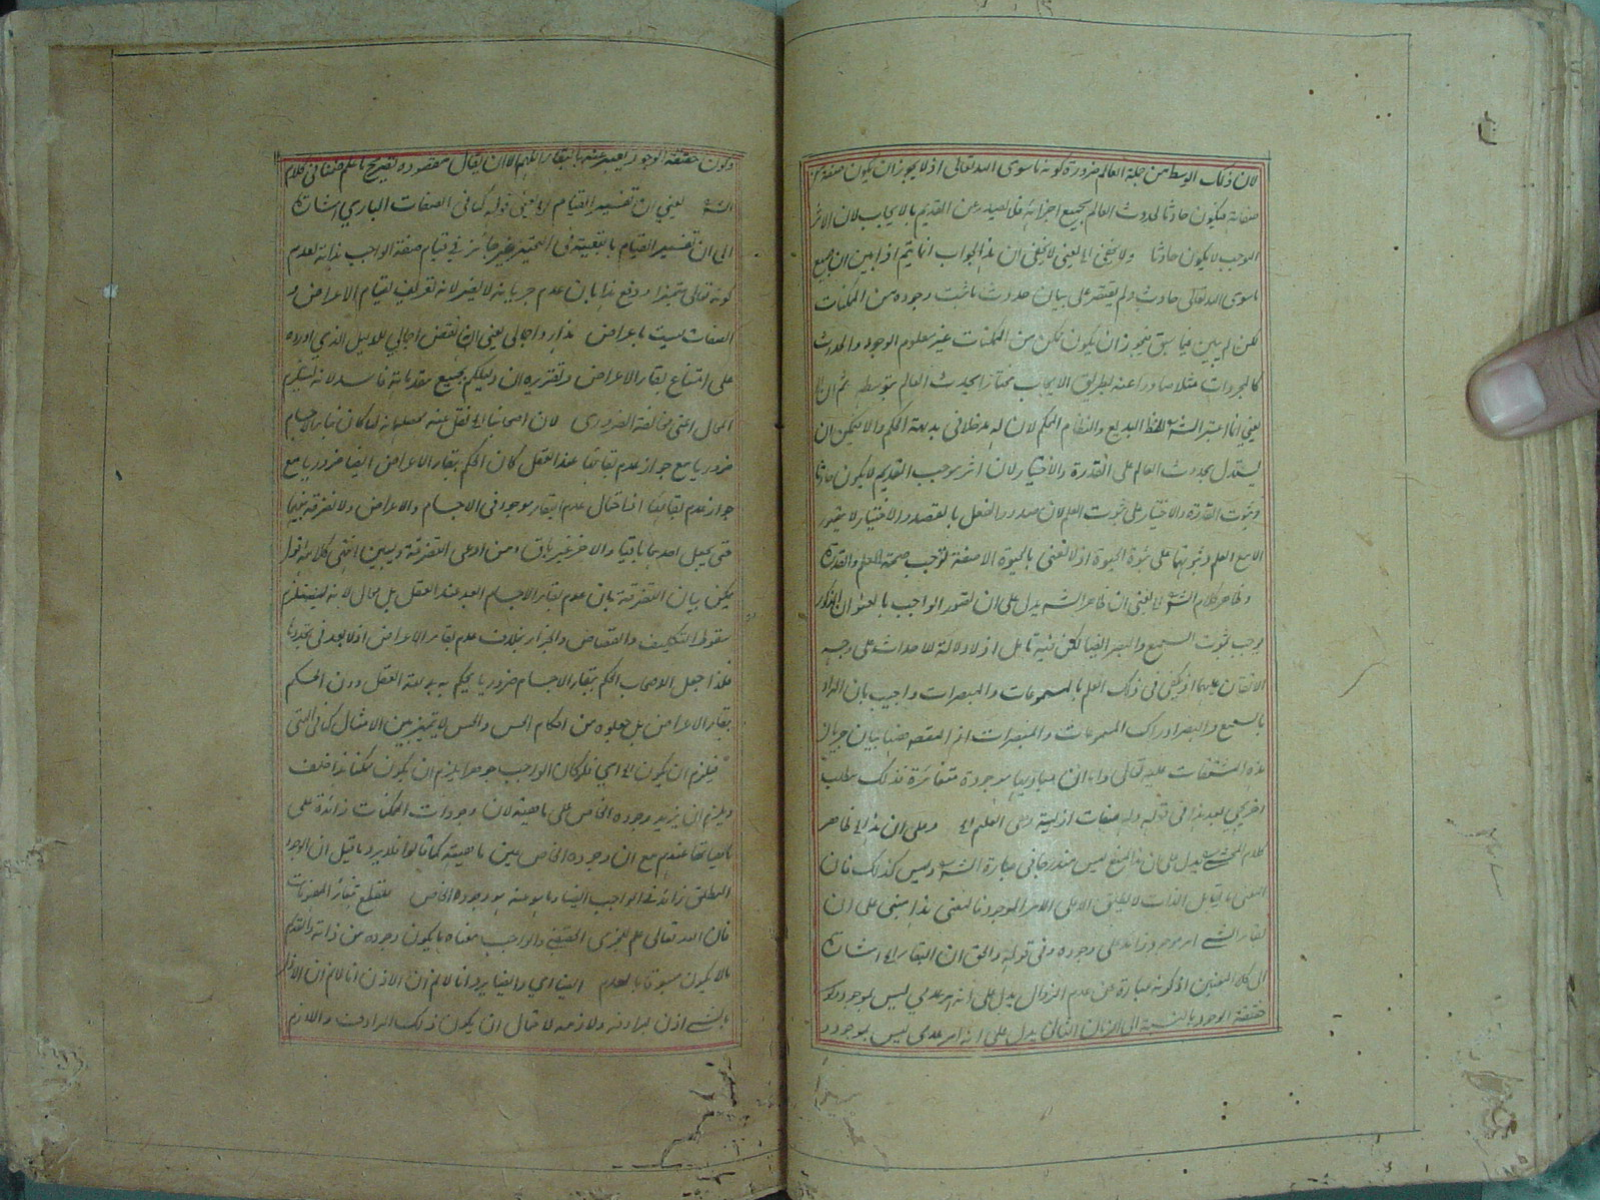 لان ذلك الوسط من جملة العالم ضرورة كونه ما سوى الله تعالى اذ لا يجوز ان يكون صفة من
صفاته فيكون حادثا لحدوث العالم بجميع اجزائه فلا يصدر عن القديم بالايجاب لان الاثر
الموجب لا يكون حادثا ولا يخفى اه يعنى لا يخفى ان هذا الجواب انما يتم اذا بين ان جميع
ما سوى الله تعالى حادث ولم يقتصر على بيان حدوث ما ثبت وجوده من الممكنات
لكن لم يبين فيما سبق فيجوز ان يكون ممكن من الممكنات غير معلوم الوجود والحدوث
كالمجردات مثلا صادرا عنه بطريق الايجاب مختارا يحدث العالم بتوسطه ثم ان
يعنى انما اعتبر الش لفظ البديع والنظام المحكم لان له مدخلا فى بديهة الحكم والا فيمكن ان
يستدل بحدوث العالم على القدرة والاختيار لان اثر موجب القديم لا يكون حادثا
وثبوت القدرة والاختيار على ثبوت العلم لان صدور الفعل بالقصد والاختيار لا يتصور
الا مع العلم وثبوتهما على ثبوت الحيوة اذ لا نعنى بالحيوة الا صفة توجب صحة العلم والقدرة
وظاهر كلام الش اه يعنى ان ظاهر الش يدل على ان تصور الواجب بالعنوان المذكور
يوجب ثبوت السمع والبصر ايضا لكن فيه تامل اذ لا دلالة للاحداث على وجه
الاتقان عليهما اذ يكفى فى ذلك العلم بالمسموعات والمبصرات واجيب بان المراد
بالسمع والبصر ادراك المسموعات والمبصرات اذ المقصد ههنا بيان جريان
هذه المشتقات عليه تعالى واما ان مباديها موجودة متغائرة فذلك مطلب
اخر يجىء بعد هذا فى قوله وله صفات ازلية وهى العلم اه وعلى ان هذا اه ظاهر
كلام المحشى يدل على ان هذا المنع ليس مندرجا فى عبارة الش وليس كذلك فان
المعنى ما يقابل الذات لا يطلق الا على الامر الموجود فالمعنى هذا مبنى على ان
بقاء الشئ امر موجود زائد على وجوده وفى قوله والحق ان البقاء اه اشارة
الى كلا المعنيين اذ كونه عبارة عن عدم الزوال يدل على انه امر عدمى ليس بموجود وكونه
حقيقة الوجود بالنسبة الى الزمان الثانى يدل على انه امر عدمى ليس بموجود و
وكون حقيقة الوجود يعبر عنه بالبقاء اللهم الا ان يقال مقصوده تصريح ما علم ضمنا فى كلام
الش يعنى ان تفسير القيام اه يعنى قوله كما فى الصفات البارى اشارة
الى ان تفسير القيام بالتبعية فى التحيز غير جائز فى قيام صفة الواجب بذاته لعدم
كونه تعالى متحيزا ودفع هذا بان عدم جريانه لا يضر لانه تعريف لقيام الاعراض و
الصفات ليست باعراض هذا رد اجمالى يعنى ان نقض اجمالى للدليل الذى اورده
على امتناع بقاء الاعراض وتقريره ان دليلكم بجميع مقدماته فاسد لانه يستلزم
المحال اعنى مخالفة الضرورى لان اصحابنا اه نقل عنه معناه انه كما كان بقاء الاجسام
ضروريا مع جواز عدم بقائها عند العقل كان الحكم ببقاء الاعراض ايضا ضروريا مع
جواز عدم بقائها اذ احتمال عدم البقاء موجود فى الاجسام والاعراض ولا تفرقة بينهما
حتى يجعل احدهما باقيا والاخر غير باق ومن ادعى التفرقة فليبين انتهى كلامه اقول
يمكن بيان التفرقة بان عدم بقاء الاجسام ابعد عند العقل بل محال لانه يستلزم
سقوط التكليف والقصاص والجزاء بخلاف عدم بقاء الاعراض اذ لا بعد فى تجددها
فلذا جعل الاصحاب الحكم ببقاء الاجسام ضروريا يحكم به بديهة العقل دون الحكم
ببقاء الاعراض بل جعلوه من احكام الحس والحس لا يتميز بين الامثال كما فى
فيلزم ان يكون اه اى فلو كان الواجب جوهرا يلزم ان يكون ممكنا هذا خلف
ويلزم ان يزيد وجوده الخاص على ماهيته لان وجودات الممكنات زائدة على
ماهياتها عندهم مع ان وجوده الخاص عين ماهيته كما قالوا فلا يرد ما قيل ان الوجود
المطلق زائد فى الواجب ايضا وما هو عينه هو وجوده الخاص فتقطع بتغائر المفهومات
فان الله تعالى علم للجزئى الحقيقى والواجب معناه ما يكون وجوده من ذاته والقديم
ما لا يكون مسبوقا بالعدم ايضا اى وايضا يرد انا لا نم ان الاذن انا لا نم ان الاذن
بالشئ اذن لمرادفه ولازمه لاحتمال ان يكون ذلك المرادف واللازم